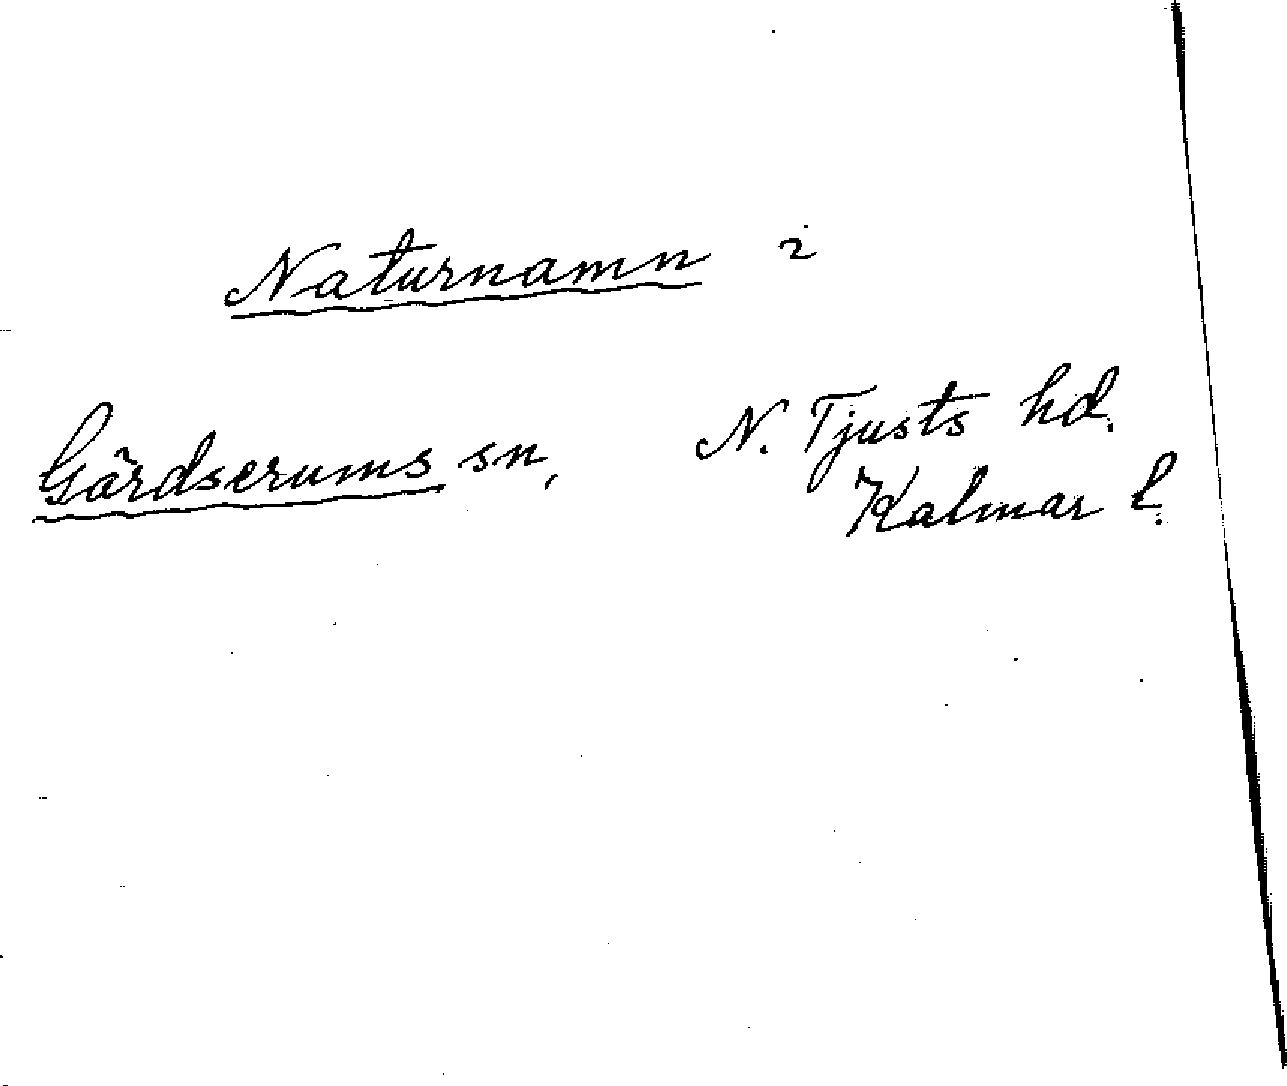 Naturnamn i
Gärdserums sn, N. Tjusts hd.
Kalmar l.